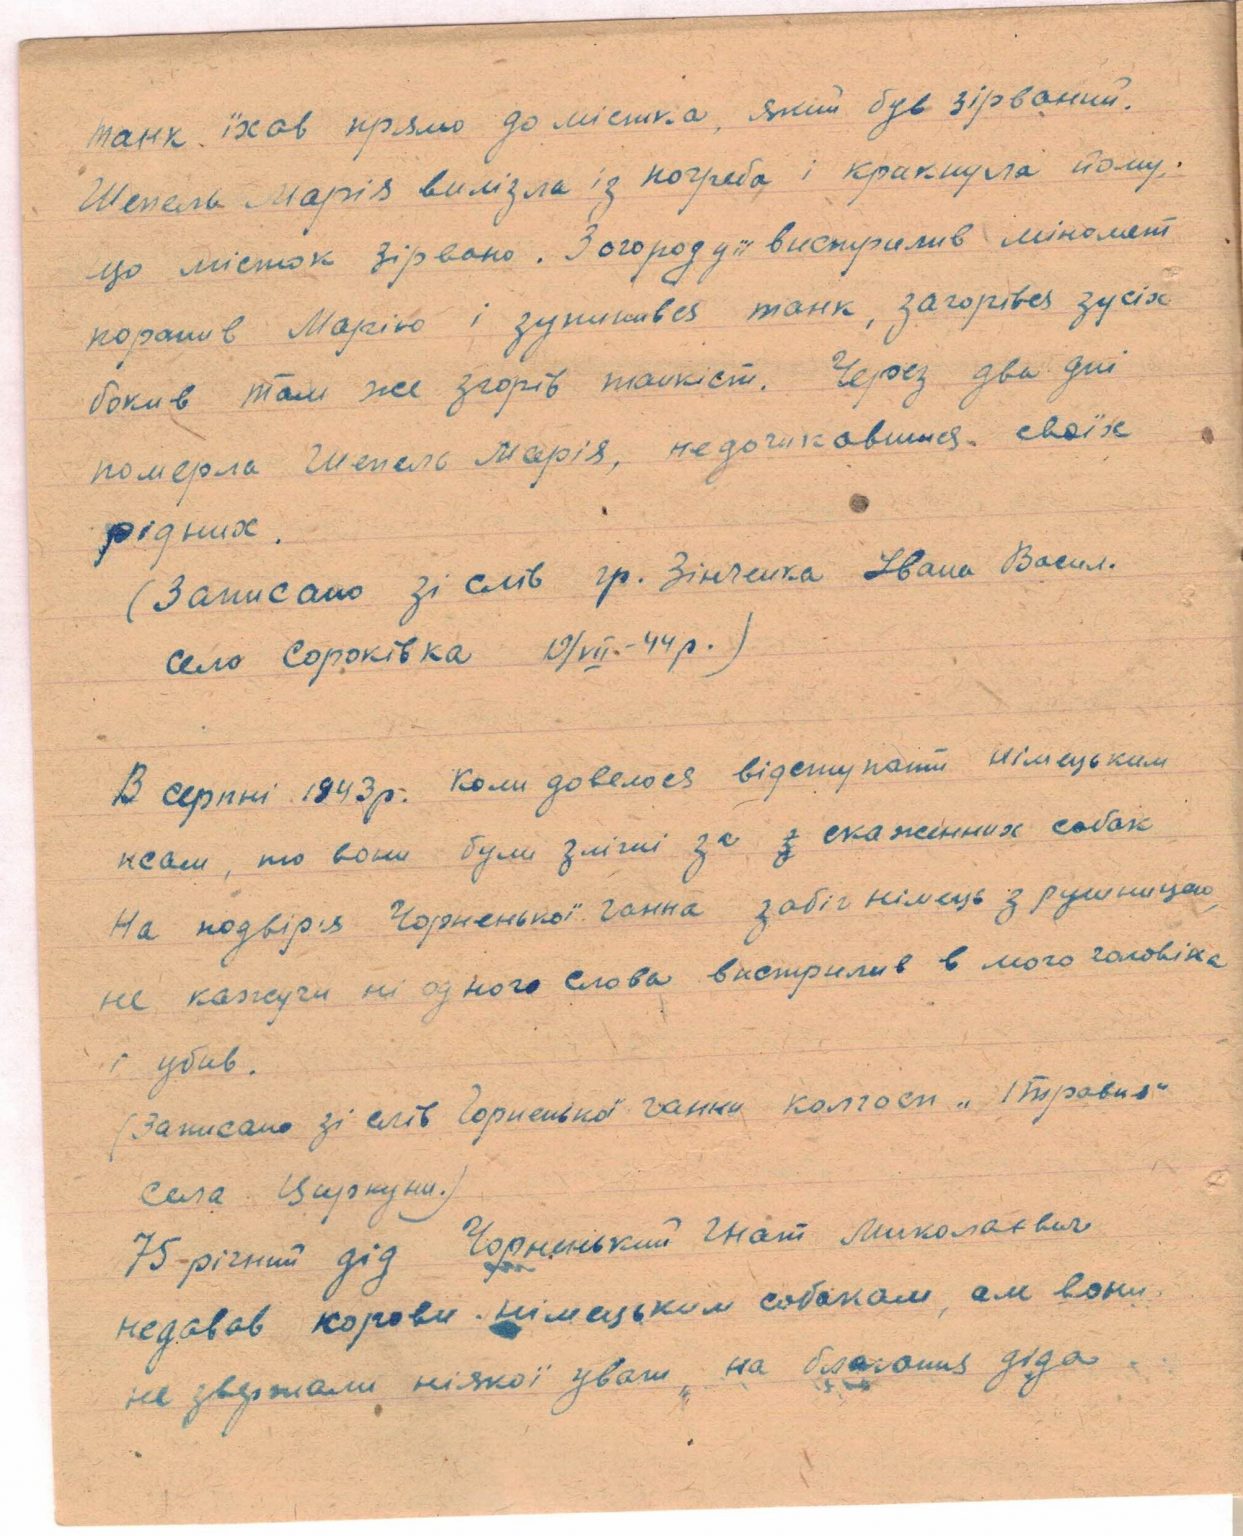 танк їхав прямо до містка, який був зірваний.
Шепель Марія вилізла із погреба і крикнула йому,
що місток зірвано. З огороду її вистрилив міномет
поранив Марію і зупинився танк, загорівся зусіх
боків там же згорів танкіст. Через два дні
померла Шепель Марія, недочикавшися своїх
рідних.
(Записано зі слів гр. Зінченка Івана Васил.
село Сороківка 19/VII.-44р.)
В серпні 1943р. коли довелося відступати німецьким
псам, то вони були зліші за скаженних собак
На подвіря Чорненької Ганна забіг німець з рушницею,
не кажучи ні одного слова вистрилив в мого чоловіка
і убив.
(Записано зі слів Чорненької Ганни колгосп „1 Травня"
села Циркуни.)
75-річний дід Чорненький Гнат Миколаєвич
недавав корови німецьким собакам, ал вони
не звертали ніякої уваги на благання діда